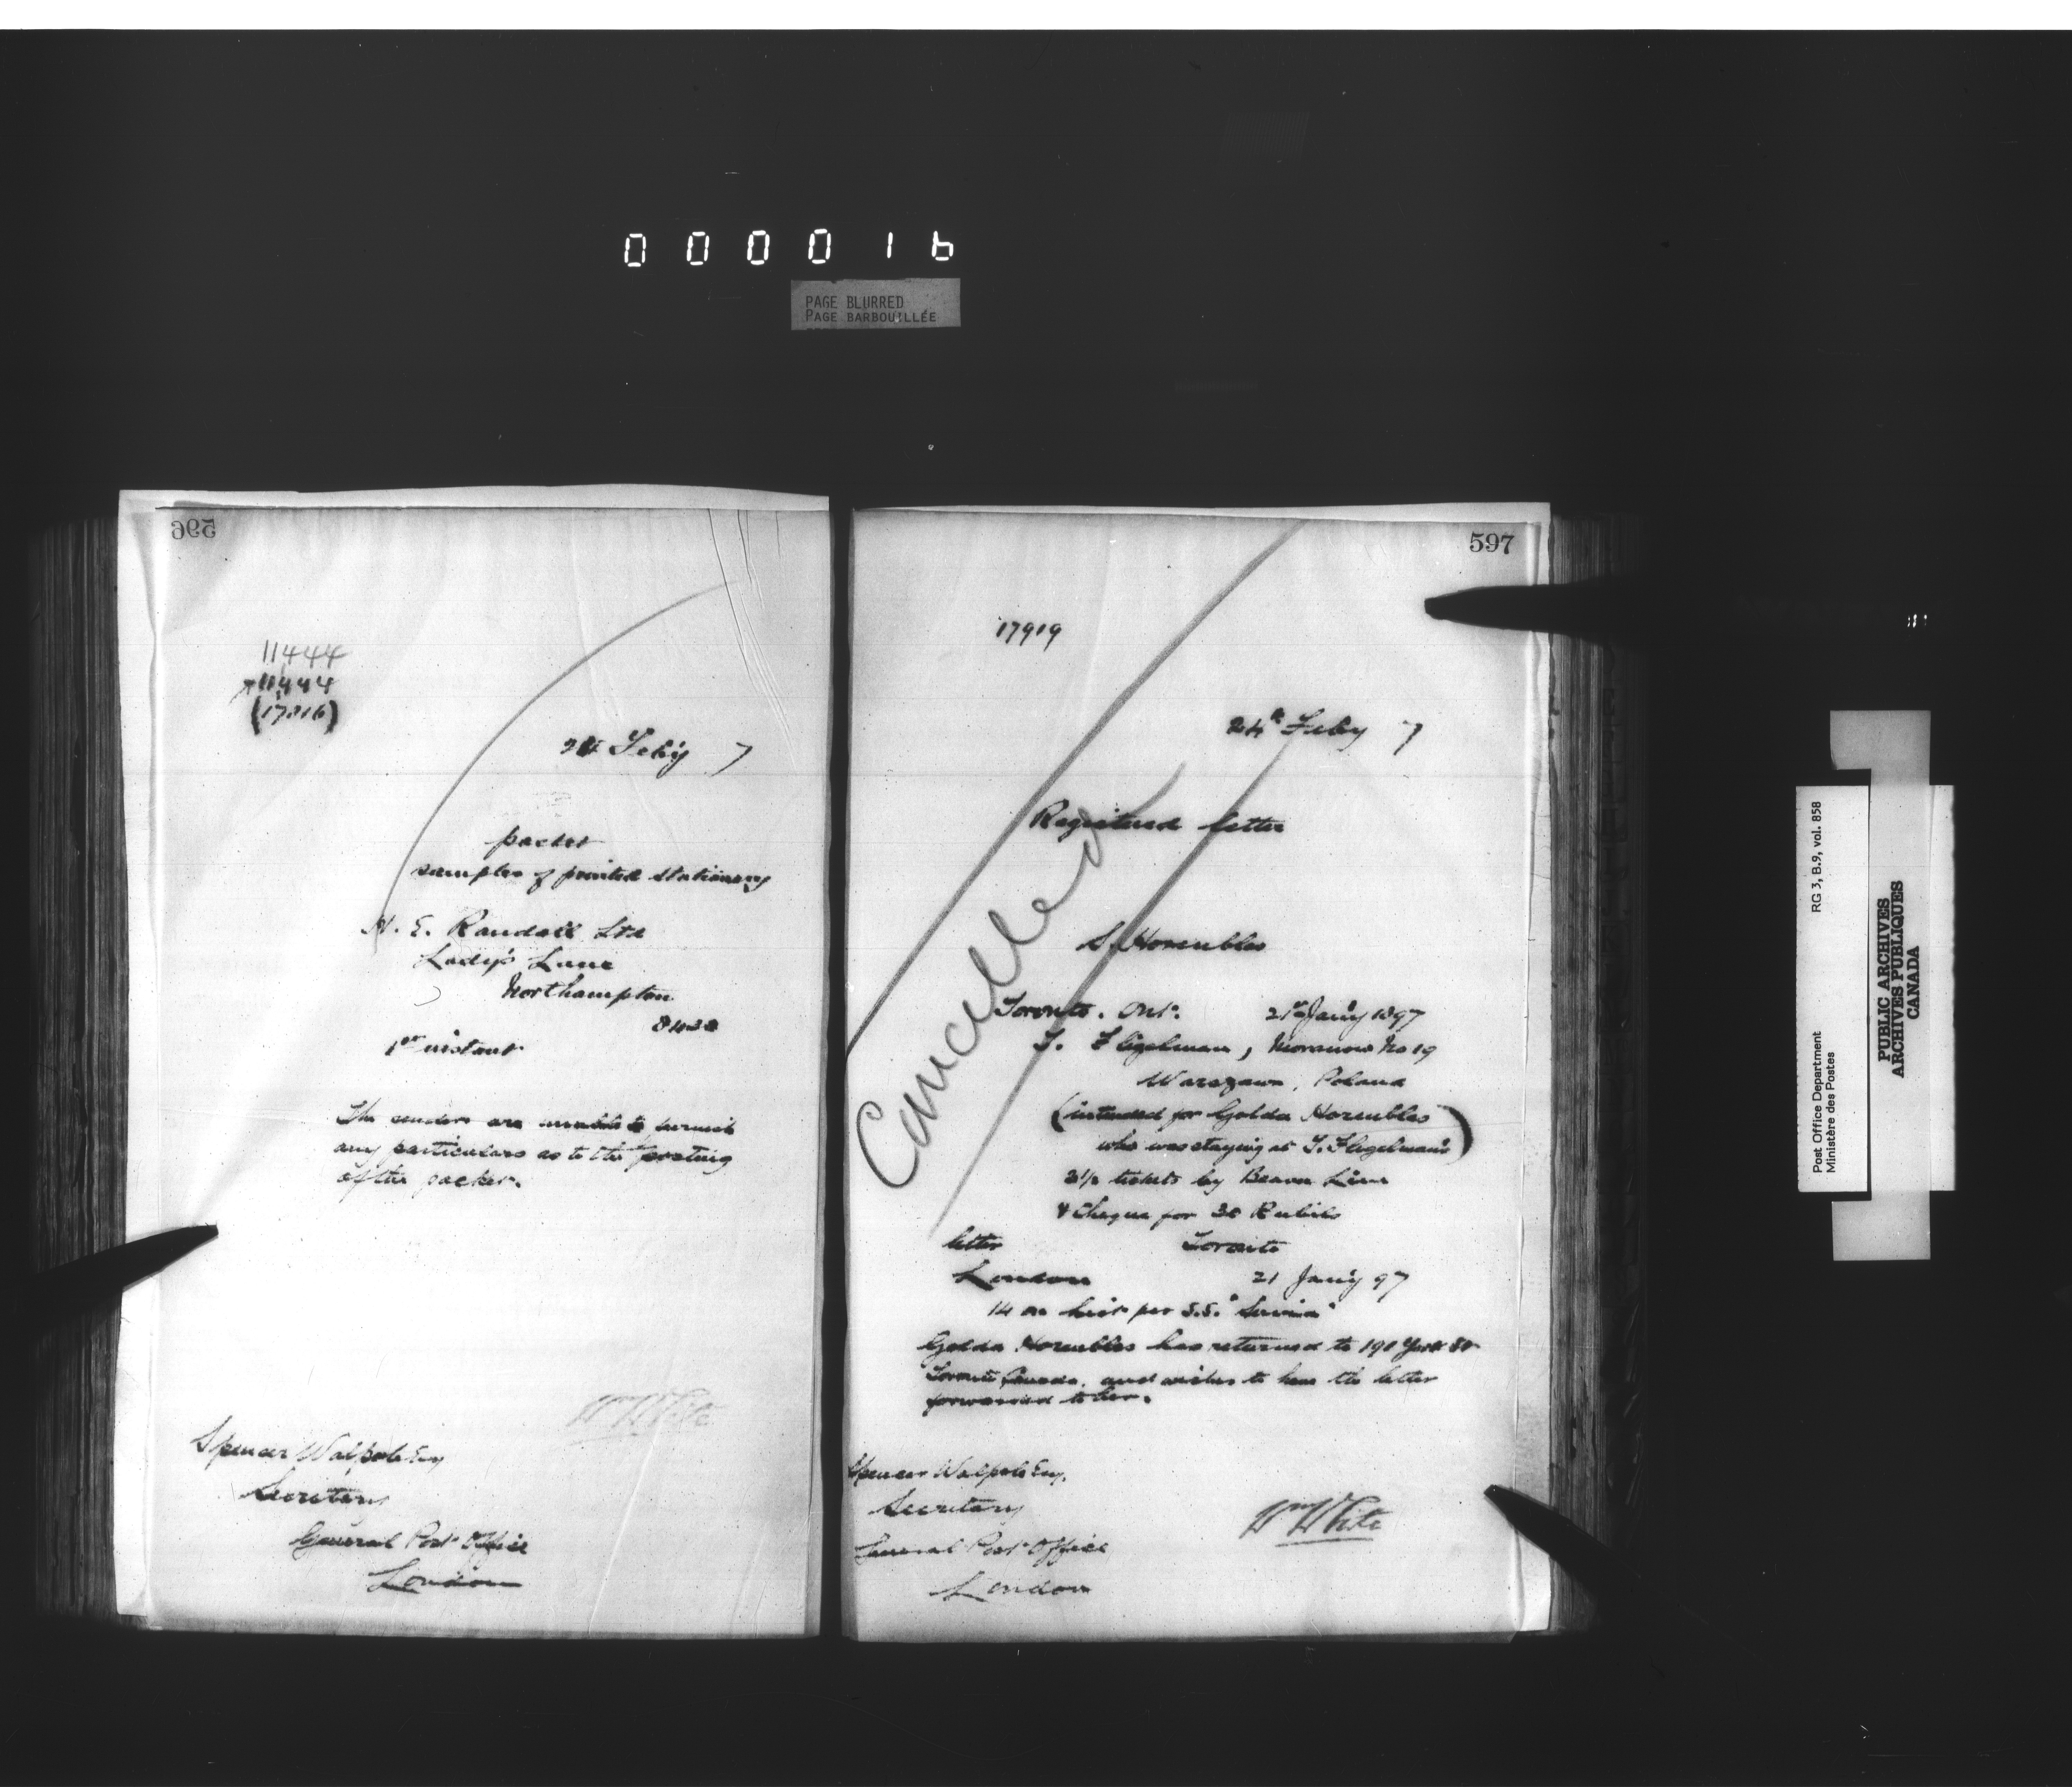 000016
PAGE BLURRED
PAGE BARBOUILLÉE
596
11444
11444
(17316)
24 Feb'y 7
packet
samples of printed stationery
H. E. Randall Ltd
Lady's Lane
Northampton
8433
1st instant
The senders are unable to furnish
any particulars as to the posting
of the packet.
Wm White
Spencer Walpole Esq
Secretary
General Post Office
London
597
17919
24th Feby 7
Registered letter
Cancelled
S. Horenblas
Toronto. Ont. 21st Jan'y 1897
T. Fligelman, Moranow No 19
Warszawa, Poland
(intended for Golda Horenblas
who was staying at T. Fligelman's)
2½ tickets by Beaver Line
& Cheque for 30 Rubils
letter Toronto
London 21 Jan'y 97
14 on list per S.S. "Servia"
Golda Horenblas has returned to 191 York St
Toronto Canada, and wishes to have the letter
forwarded to her.
Spencer Walpole Esq.
Secretary
General Post Office
London
Wm White
Post Office Department RG 3, B.9, vol. 858
Ministère des Postes
PUBLIC ARCHIVES
ARCHIVES PUBLIQUES
CANADA